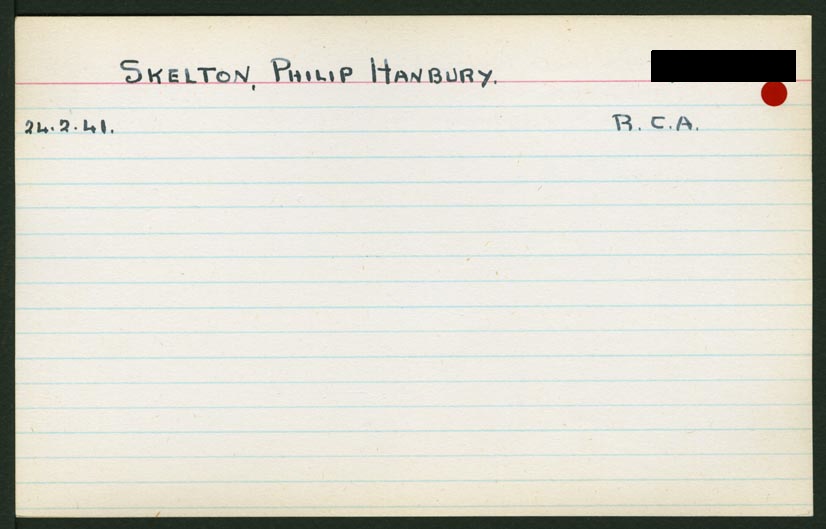 SKELTON, PHILIP HANBURY.
24.2.41. R.C.A.